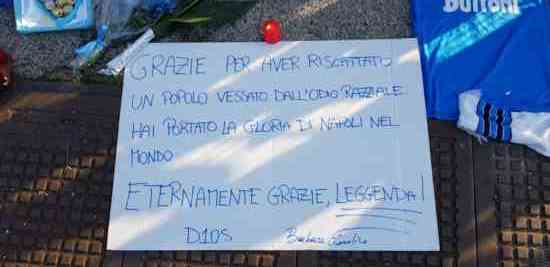 Buitoni
GRAZIE PER AVER RISCATTATO
UN POPOLO VESSATO DALL'ODIO RAZZIALE
HAI PORTATO LA GLORIA DI NAPOLI NEL
MONDO
ETERNAMENTE GRAZIE, LEGGENDA!
D10S Barbara